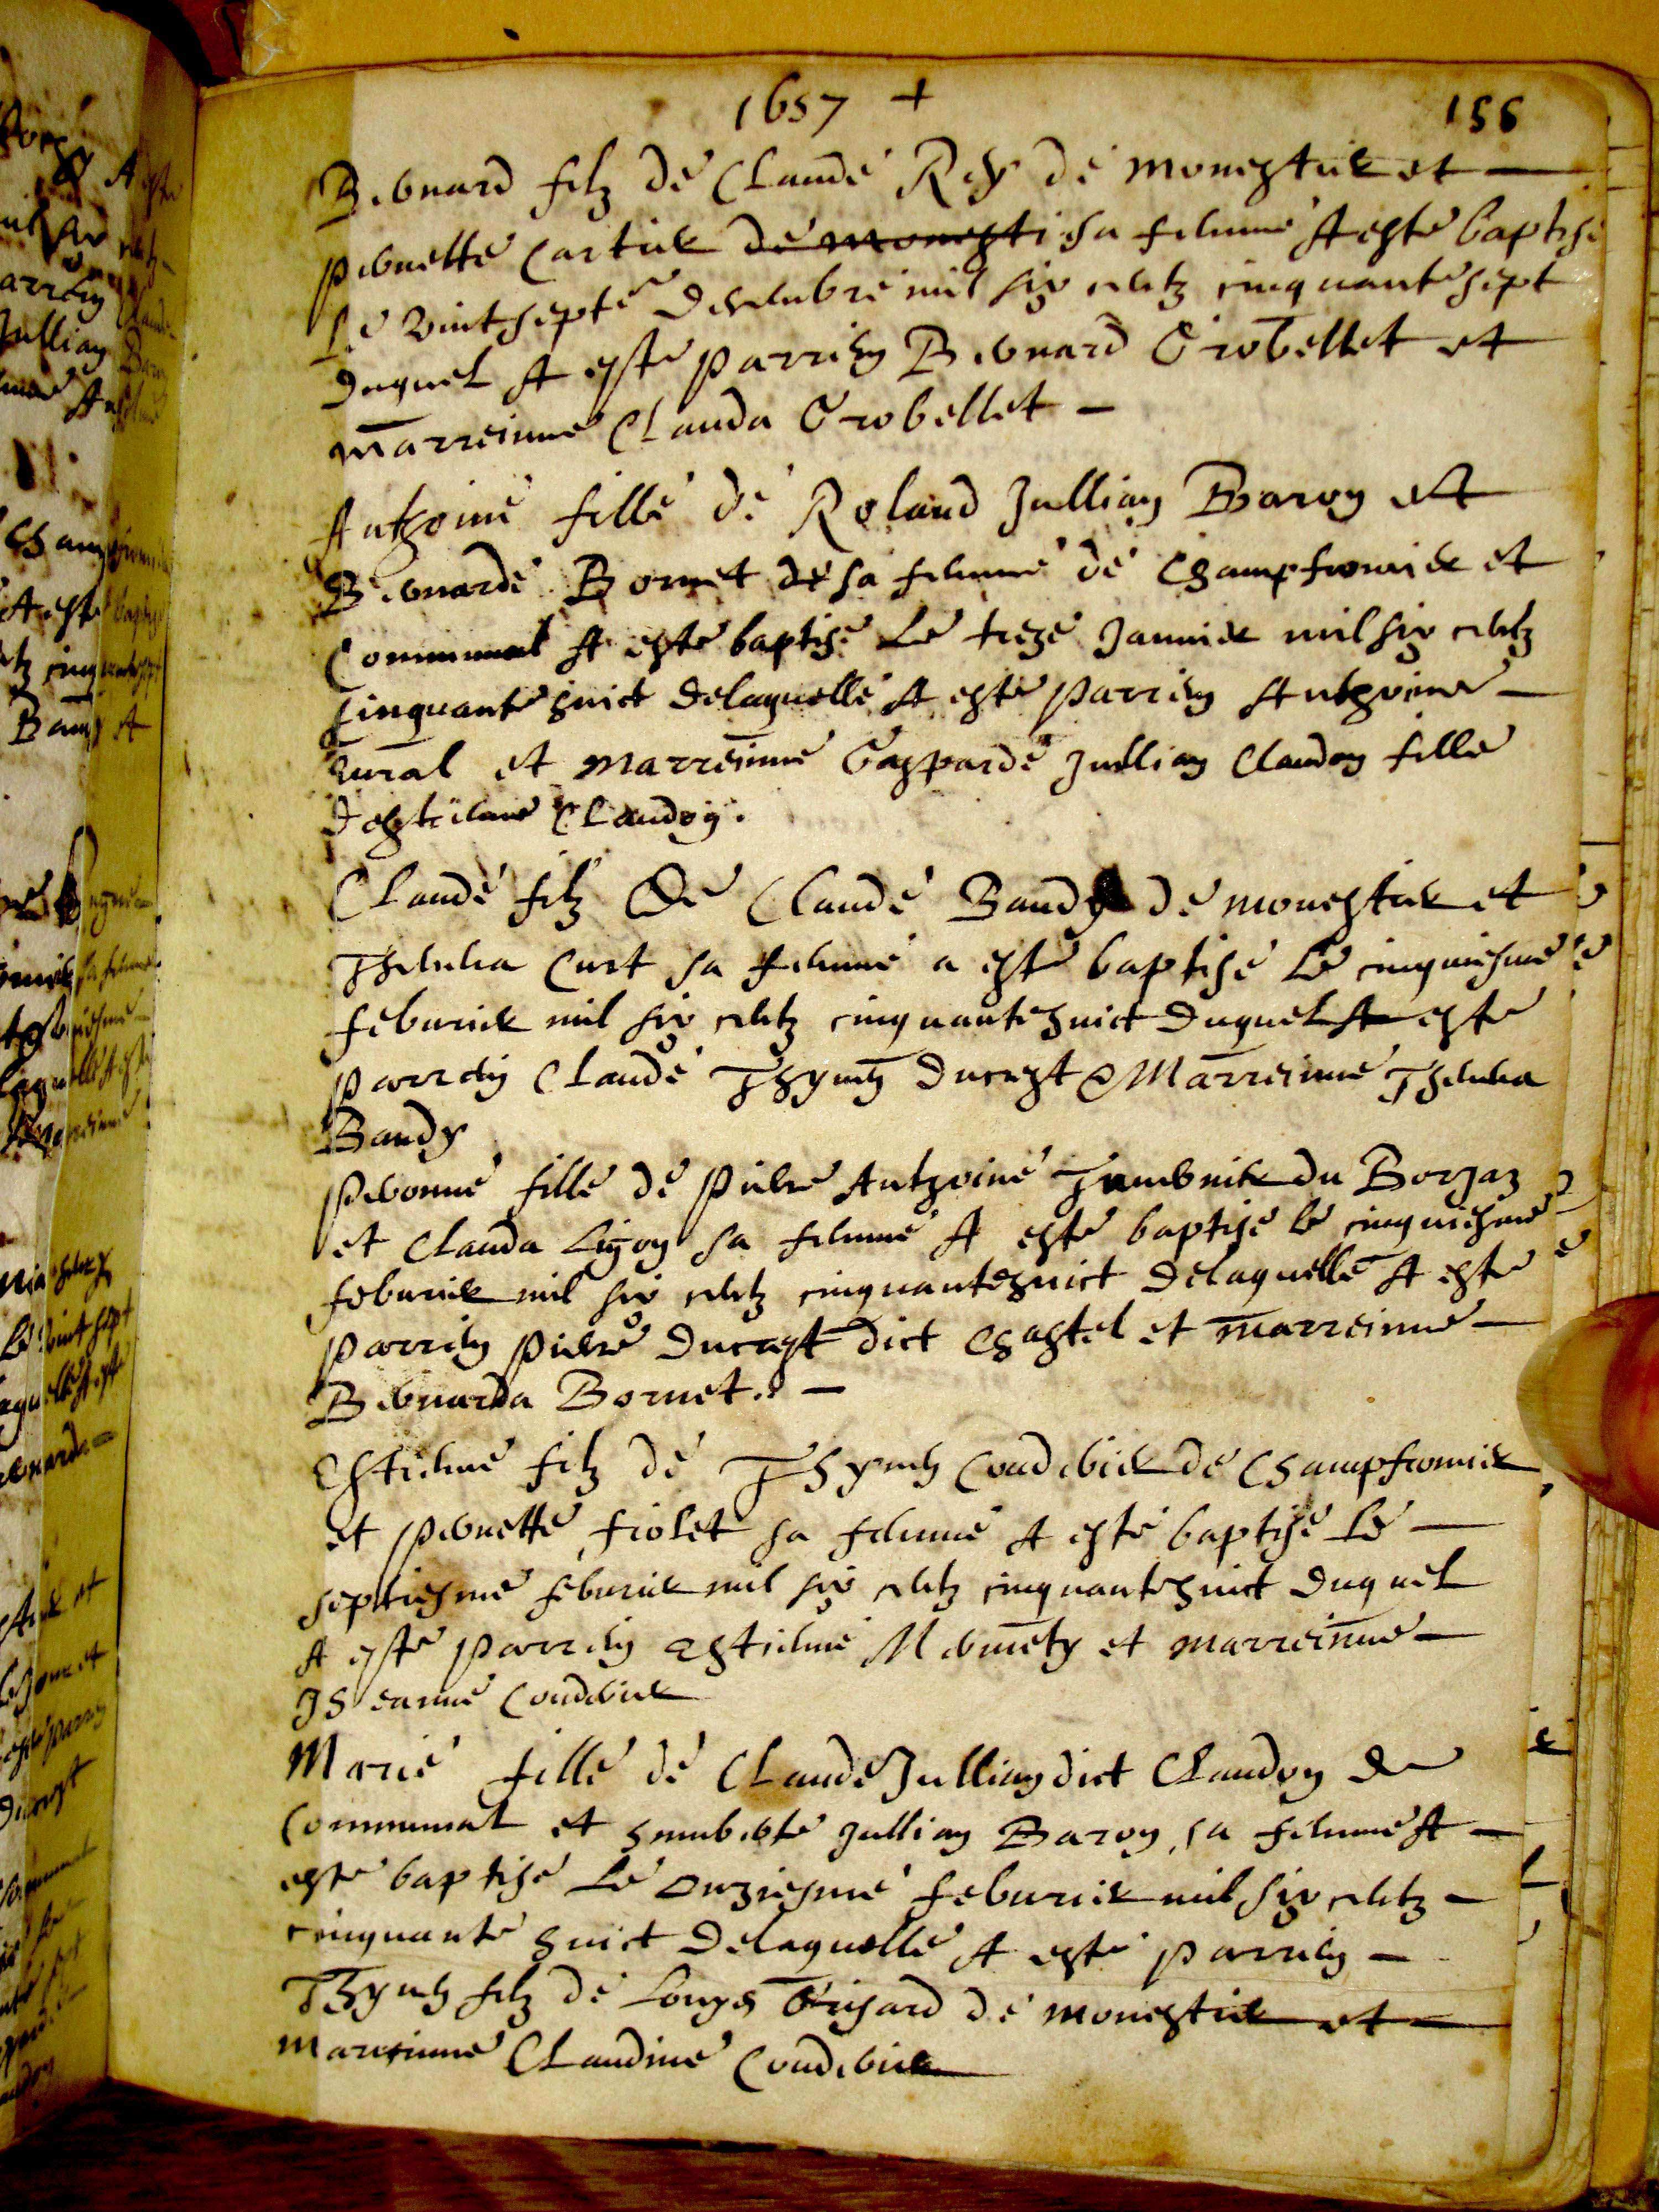 1657 +
155
Bernard filz de Claude Rey de monestier et
pernette Cartier de monesti sa femme A este baptise
Le vint septe decembre mil six centz cinquante sept
duquel A este parrein Bernard Grobellet et
marreinne Clauda Grobellet
Anthoine fille de Roland Jullian Baron et
Bernarde Bornet de sa femme de Champfromier et
Communal A este baptise Le treze Janvier mil six centz
Cinquante huict delaquelle A este parrein Anthoine
et marreinne Gasparde Jullian Claudon fille
destienne Claudon.
Claude filz De Claude Baudy de monestier et
Thevena Curt sa femme a este baptise Le cinquiesme
febvrier mil six centz cinquante huict duquel A este
parrein Claude Thyven Ducrest & Marreinne Thevena
Baudy
peronne fille de pierre Anthoine Tavernier du Borjaz
et Clauda Ligon sa femme A este baptise le cinquiesme
febvrier mil six centz cinquante huict delaquelle A este
parrein pierre Ducrest dict Chastel et marreinne
Bernarda Bornet.
Estienne filz de Thyven Coudurier de Champfromier
et pernette fiolet sa femme A este baptise Le
septiesme febvrier mil six centz cinquante huict duquel
A este parrein Estienne Mermety et marreinne
Jeanne Coudurier
Marie fille de Claude Jullian dict Claudon de
Communal et humberte Jullian Baron sa femme A
este baptise Le onziesme febvrier mil six centz
cinquante huict delaquelle A este parrein
Thyven filz de Louys Grisard de monestier et
marreinne Claudine Coudurier